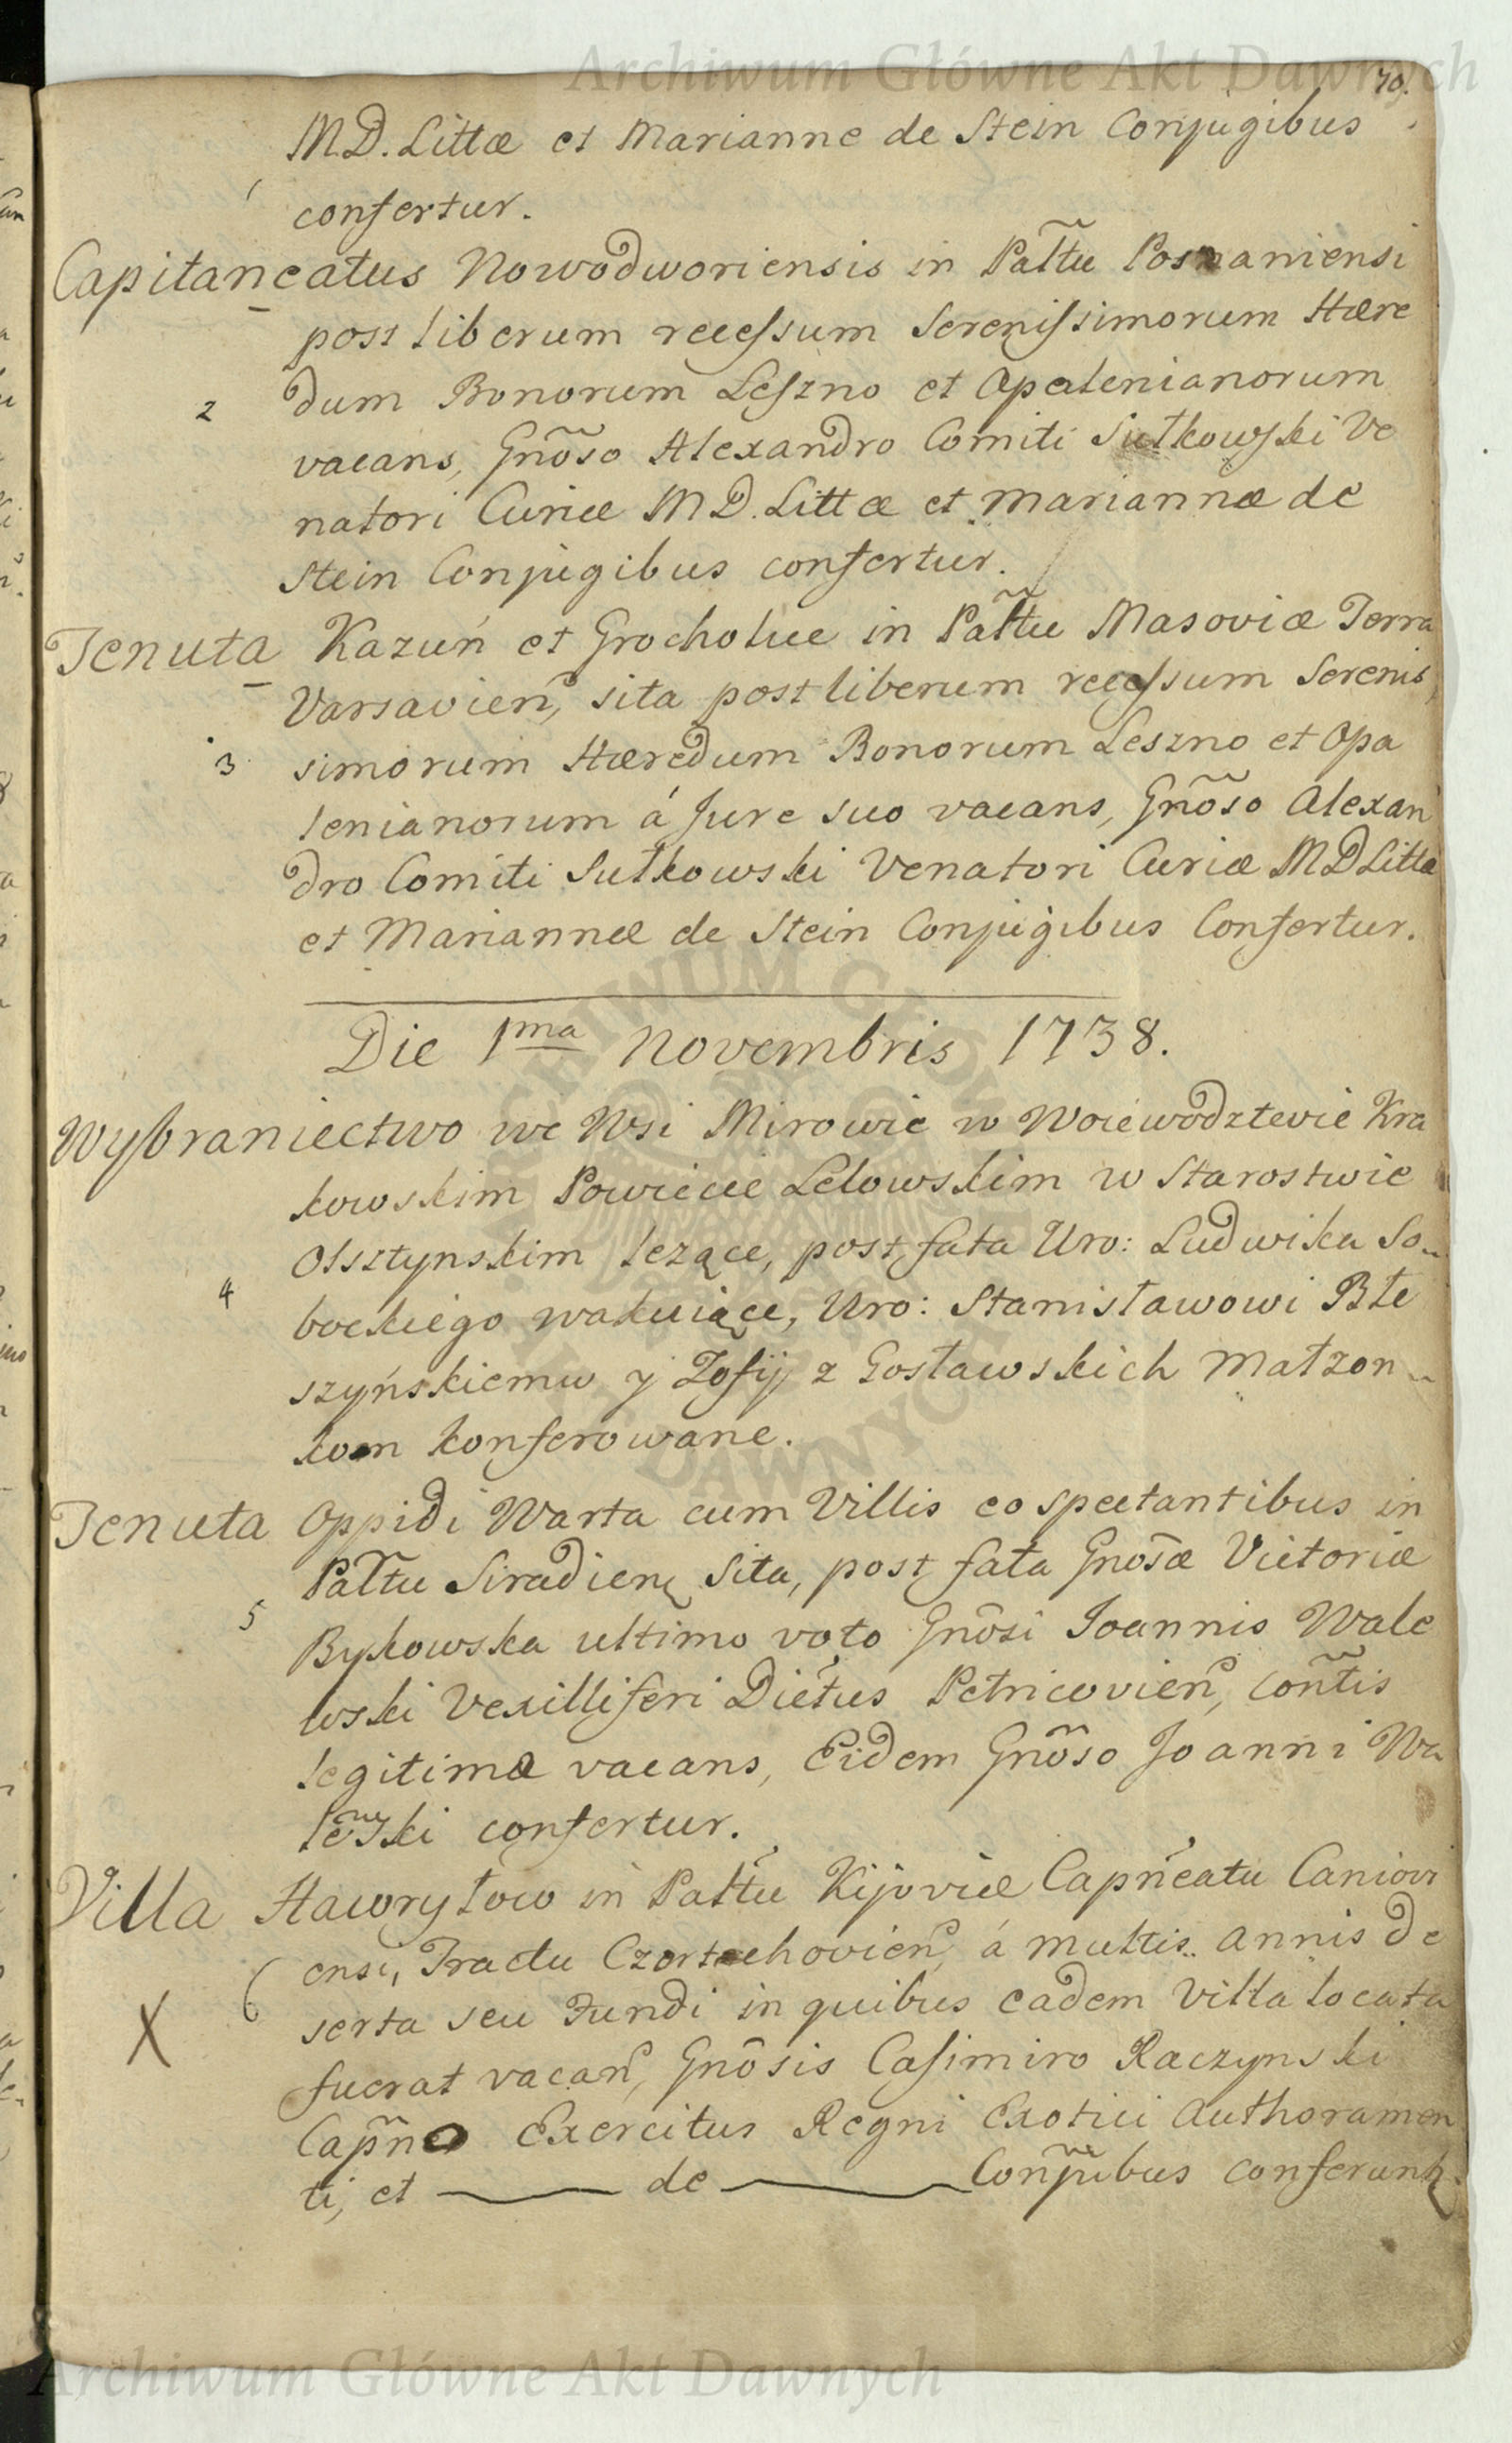 Archiwum Główne Akt Dawnych
70.
M.D. Littæ et Marianne de Stein Conjugibus
1 confertur.
Capitaneatus Nowodworiensis in Pałtu Posnaniensi
post liberum recessum Serenissimorum Hære
2 dum Bonorum Leszno et Opalenianorum
vacans, Gnõso Alexandro Comiti Sułkowski Ve
natori Curiæ M.D. Littæ et Mariannæ de
Stein Conjugibus confertur.
Tenuta Kazuń et Grocholice in Pałtu Masoviæ Terra
Varsavien, sita post liberum recessum Serenis
3 simorum Hæredum Bonorum Leszno et Opa
lenianorum á Jure suo vacans, Gnõso Alexan
dro Comiti Sułkowski Venatori Curiæ M D Littæ
et Mariannæ de Stein Conjugibus Confertur.
Die 1ma Novembris 1738.
Wybraniectwo we Wsi Mirowie w Woiewodztwie Kra
kowskim Powiecie Lelowskim w Starostwie
Olsztynskim leżące, post fata Uro: Ludwika So
4 bockiego wakuiące, Uro: Stanisławowi Błe
szyńskiemu y Zofij z Gosławskich Małzon
kom konferowane.
Tenuta Oppidi Warta cum Villis eo spectantibus in
Pałtu Siradien Sita, post fata Gnosæ Victoriæ
5 Bykowska ultimo voto Gnõsi Joannis Wale
wski Vexilliferi Diẽtus Petricovien, Coñtis
legitimæ vacans, Eidem Gnõso Joanni Wa
lewski confertur.
Villa Hawryłow in Pałtu Kijoviæ Capñeatu Caniovi
ensi, Tractu Czortechovien, á multis annis de
6 serta seu Fundi in quibus eadem Villa locata
X fuerat vacan, Gnõsis Casimiro Raczynski
Capñeo Exercitus Regni Exotici Authoramen
ti, et ——— de ——— Conjubus conferunt
ARCHIWUM GŁÓWNE AKT DAWNYCH
Archiwum Główne Akt Dawnych